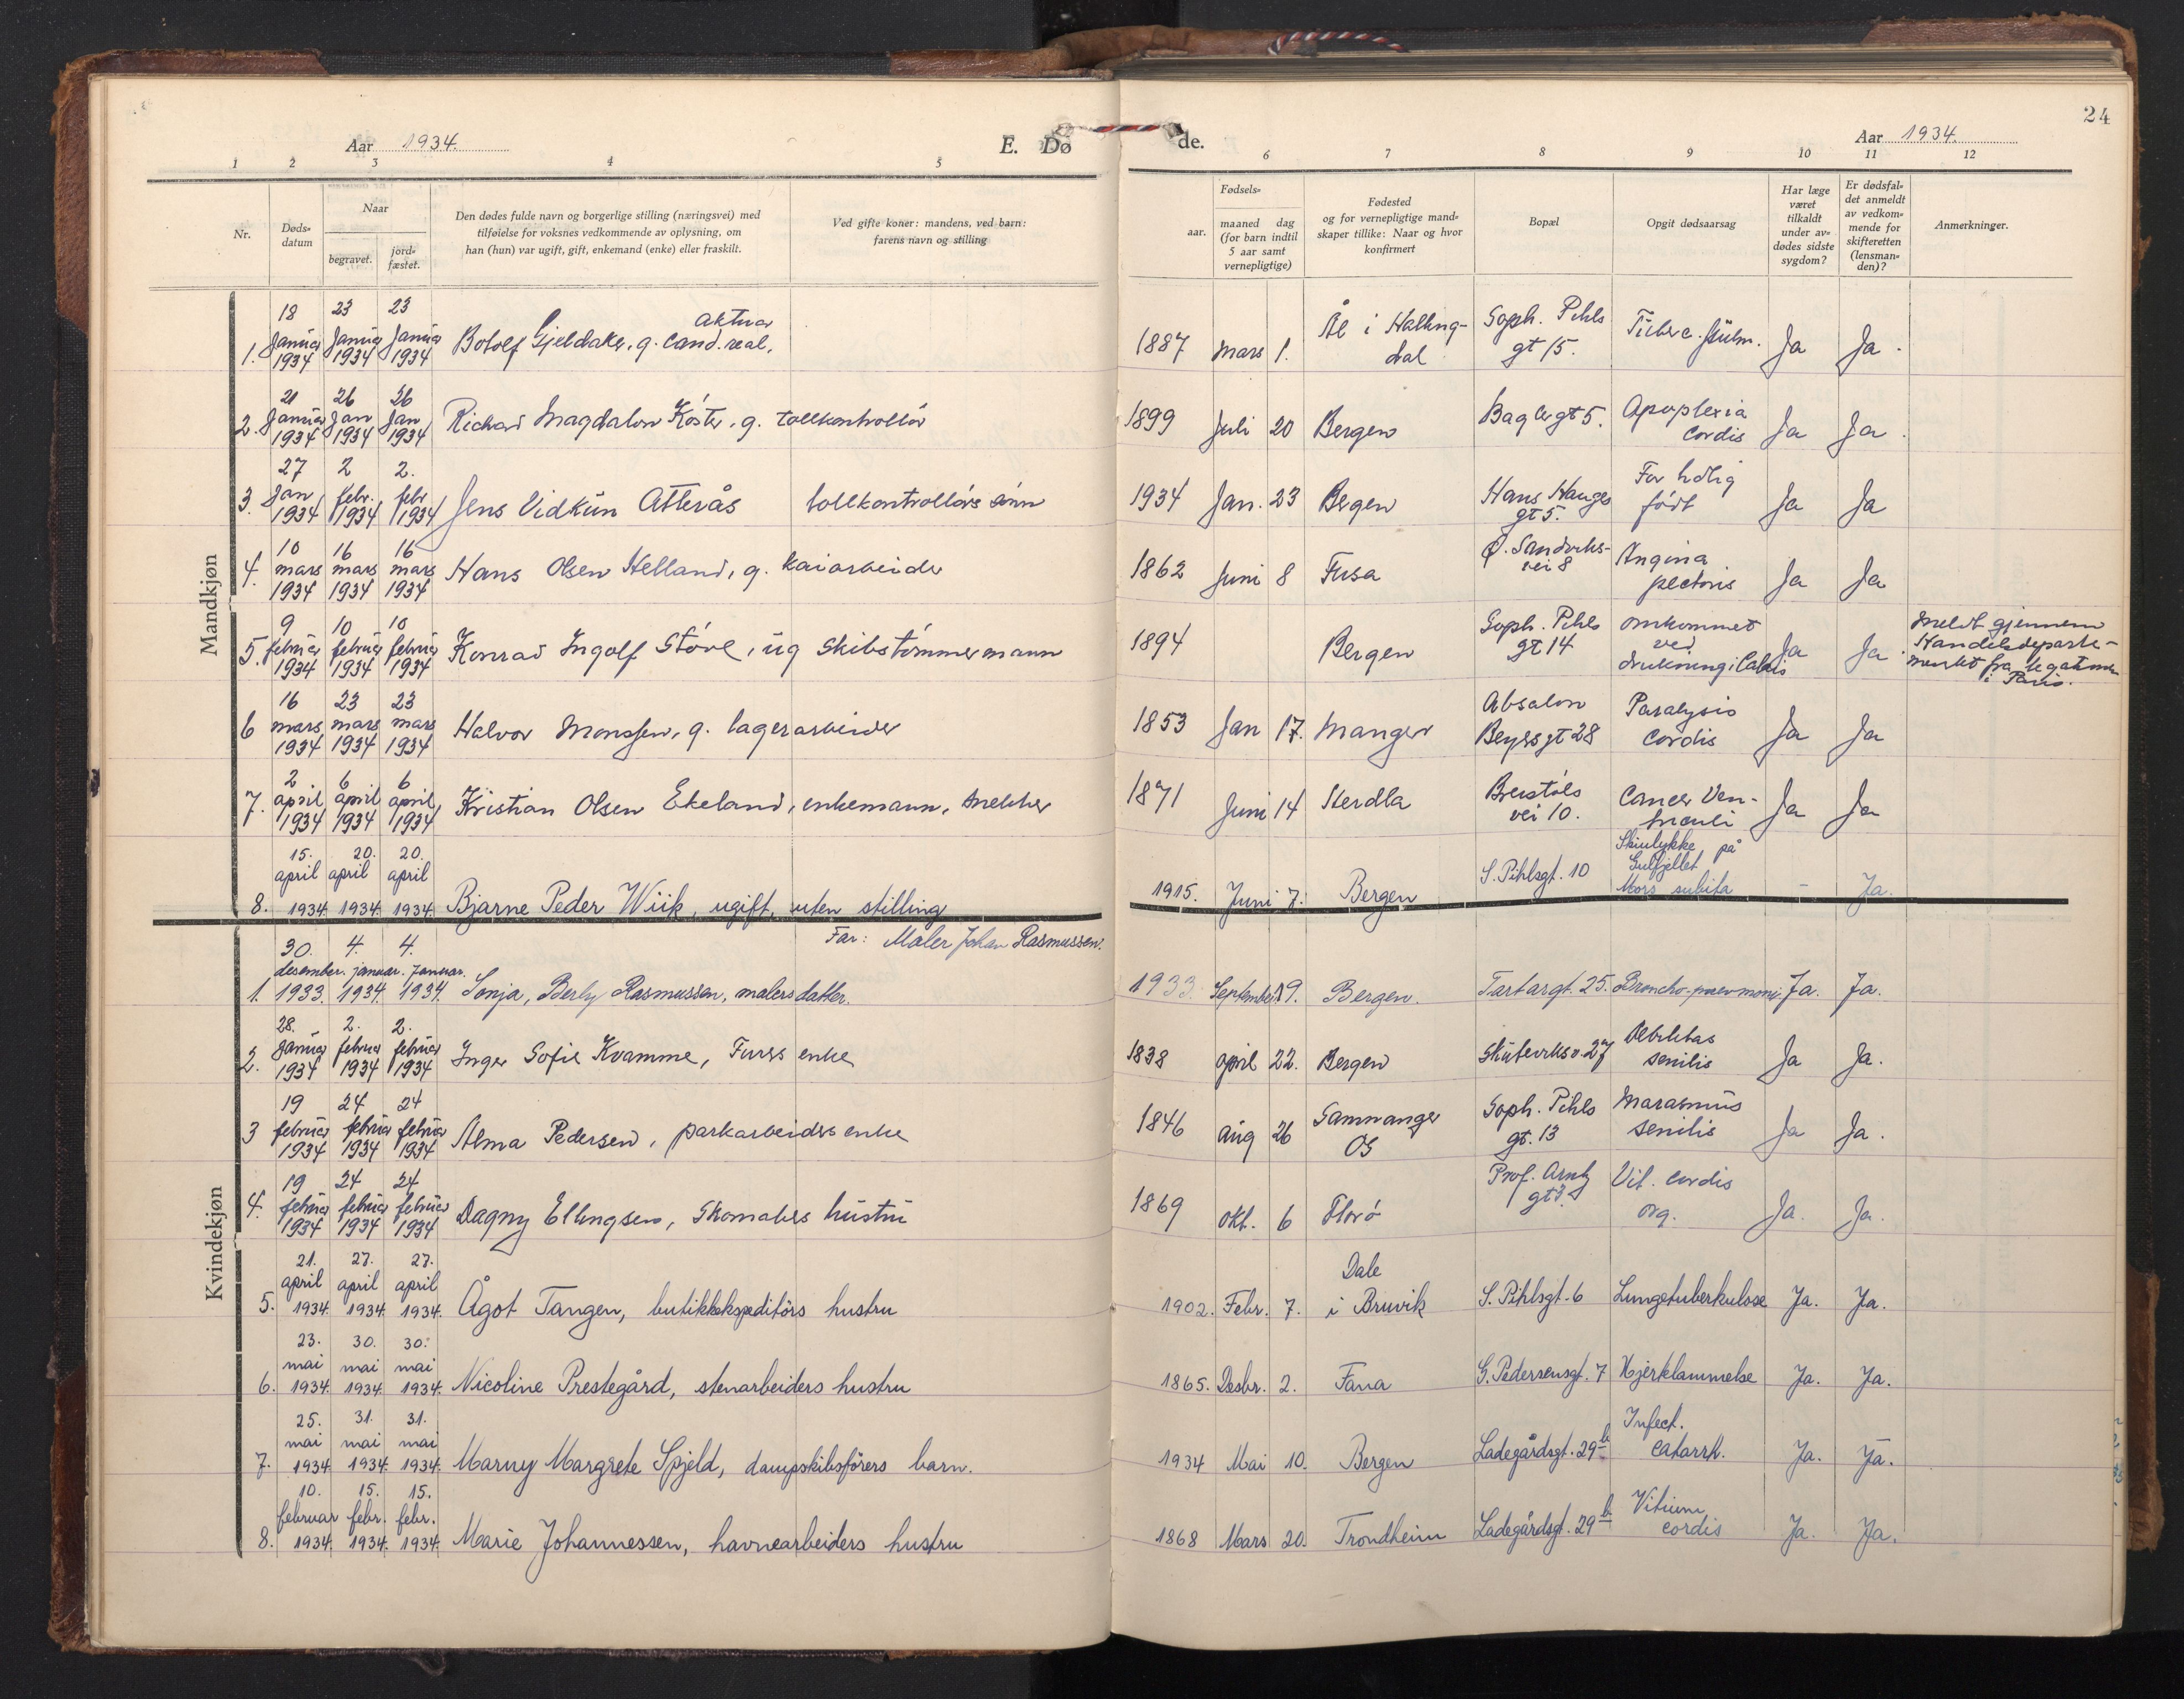 24
Aar 1934. E. Dø de. Aar 1934.
1 2 3 4 5 6 7 8 9 10 11 12
Nr.
Døds-
datum
Naar
begravet.
jord-
fæstet.
Den dødes fulde navn og borgerlige stilling (næringsvei) med
tilføielse for voksnes vedkommende av oplysning, om
han (hun) var ugift, gift, enkemand (enke) eller fraskilt.
Ved gifte koner: mandens, ved barn:
farens navn og stilling
Fødsels-
aar.
maaned dag
(for barn indtil
5 aar samt
vernepligtige)
Fødested
og for vernepligtige mand-
skaper tillike: Naar og hvor
konfirmert
Bopæl
Opgit dødsaarsag
Har læge
været
tilkaldt
under av-
dødes sidste
sygdom?
Er dødsfal-
det anmeldt
av vedkom-
mende for
skifteretten
(lensman-
den)?
Anmerkninger.
Mandkjøn
1. 18 Januar 1934 23 Januar 1934 23 Januar 1934 Botolf Gjeldaker, g. Cand. real, aktuar 1887 Mars 1. Ål i Halling-dal Soph. Pihls gt 15. Tuberc. pulm. Ja Ja.
2. 21 Januar 1934 26 Jan 1934 26 Jan 1934 Richard Magdalon Köster, g. tollkontrollör 1899 Juli 20 Bergen Baglergt 5. Apoplexia Cordis Ja Ja.
3. 27 Jan 1934 2 febr. 1934 2. febr 1934 Jens Vidkun Atterås tollkontrollörs sönn 1934 Jan. 23 Bergen Hans Hauges gt 5. For tidlig födt Ja Ja
4. 10 mars 1934 16 mars 1934 16 mars 1934 Hans Olsen Helland, g. kaiarbeider 1862 Juni 8 Fusa Ø. Sandviks-vei 8 Angina pectoris Ja Ja
5. 9 februar 1934 10 februar 1934 10 februar 1934 Konrad Ingolf Störe, ug skibstömmermann 1894 Bergen Soph. Pihls gt 14 omkommet ved drukning i Calais Ja Ja Meldt gjennem Handelsdeparte-mentet fra legationen i Paris.
6 16 mars 1934 23 mars 1934 23 mars 1934 Halvor Monssen, g. lagerarbeider 1853 Jan 17. Manger Absalon Beyers gt 28 Paralysis Cordis Ja Ja
7. 2 april 1934 6 april 1934 6 april 1934 Kristian Olsen Ekeland, enkemann, snekker 1871 Juni 14 Herdla Breistöls vei 10. Cancer Ven-triculi Ja Ja
8. 15. april 1934 20. april 1934 20. april 1934 Bjarne Peder Wiik, ugift, uten stilling 1915. Juni 7. Bergen S. Pihlsgt. 10 Skiulykke på Gulfjellet Mors subita - Ja.
Kvindekjøn
1. 30. desember. 1933. 4. januar. 1934. 4. Januar. 1934. Sonja, Berly Rasmussen, malers datter. Far: Maler Johan Rasmussen. 1933. September 19. Bergen. Tartargt. 25. Broncho-pneumoni Ja. Ja.
2. 28. Januar 1934 2. februar 1934 2. februar 1934 Inger Sofie Kvamme, Furers enke 1838 april 22. Bergen Skuteviksv. 27 Debilitas senilis Ja Ja.
3 19 februar 1934 24 februar 1934 24 februar 1934 Alma Pedersen, parkarbeiders enke 1846 aug 26 Samnanger Os Soph. Pihls gt. 13 Marasmus senilis Ja Ja.
4. 19 februar 1934 24 februar 1934 24 februar 1934 Dagny Ellingsen, Skomakers hustru 1869 okt. 6 Florö Prof. Arntz gt 3 Vit. cordis org. Ja. Ja.
5. 21. april 1934. 27. april 1934. 27. april 1934. Ågot Tangen, butikkekspeditörs hustru 1902. Febr. 7. Dale i Bruvik S. Pihlsgt. 6 Lungetuberkulose Ja. Ja.
6. 23. mai 1934. 30. mai 1934. 30. mai 1934. Nicoline Prestegård, stenarbeiders hustru 1865. Desbr. 2. Fana G. Pedersensgt. 7 Hjerklammelse Ja. Ja.
7. 25. mai 1934. 31. mai 1934. 31. mai 1934. Marny Margrete Spjeld, dampskibsförers barn. 1934 Mai 10. Bergen Ladegårdsgt. 29b Infect. catarrh. Ja. Ja.
8. 10. februar 1934. 15. febr. 1934. 15. febr. 1934. Marie Johannessen, havnearbeiders hustru 1868 Mars 20. Trondheim Ladegårdsgt. 29b Vitium cordis Ja. Ja.